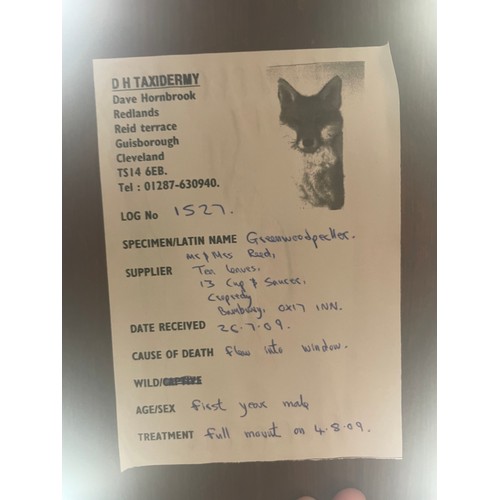 D H TAXIDERMY
Dave Hornbrook
Redlands
Reid terrace
Guisborough
Cleveland
TS14 6EB.
Tel : 01287-630940.
LOG No 1527.
SPECIMEN/LATIN NAME Greenwoodpecker.
Mr & Mrs Reed,
SUPPLIER Tea Leaves,
13 Cup & Saucer,
Cropredy
Banbury, OX17 1NN.
DATE RECEIVED 26.7.09.
CAUSE OF DEATH flew into window.
WILD/CAPTIVE
AGE/SEX first year male
TREATMENT full mount on 4.8.09.